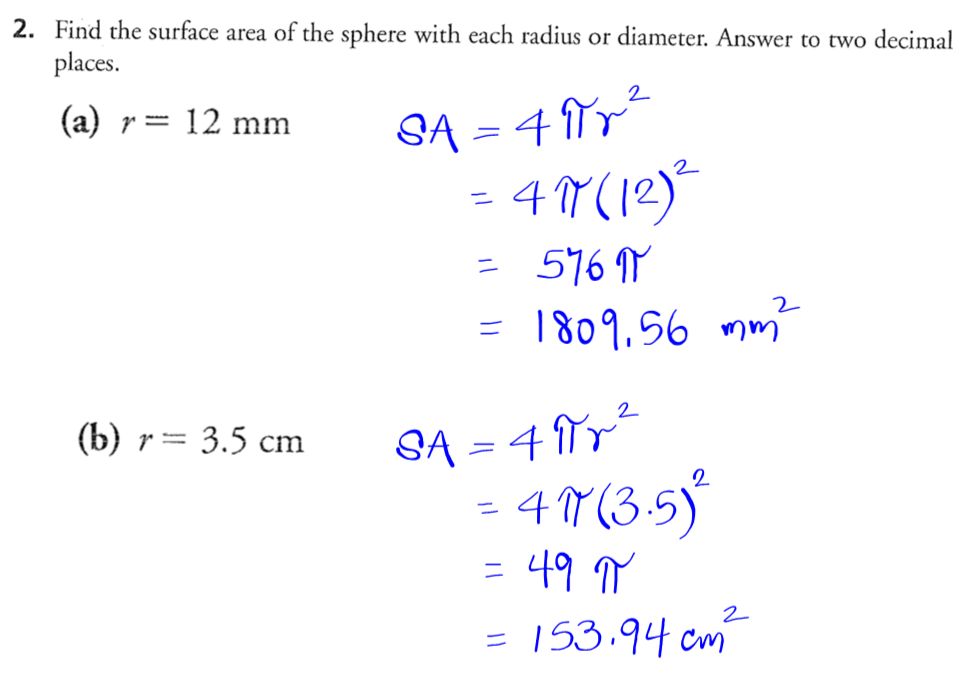 2. Find the surface area of the sphere with each radius or diameter. Answer to two decimal
places.
(a) r = 12 mm
SA = 4πr²
= 4π(12)²
= 576π
= 1809.56 mm²
(b) r = 3.5 cm
SA = 4πr²
= 4π(3.5)²
= 49π
= 153.94 cm²